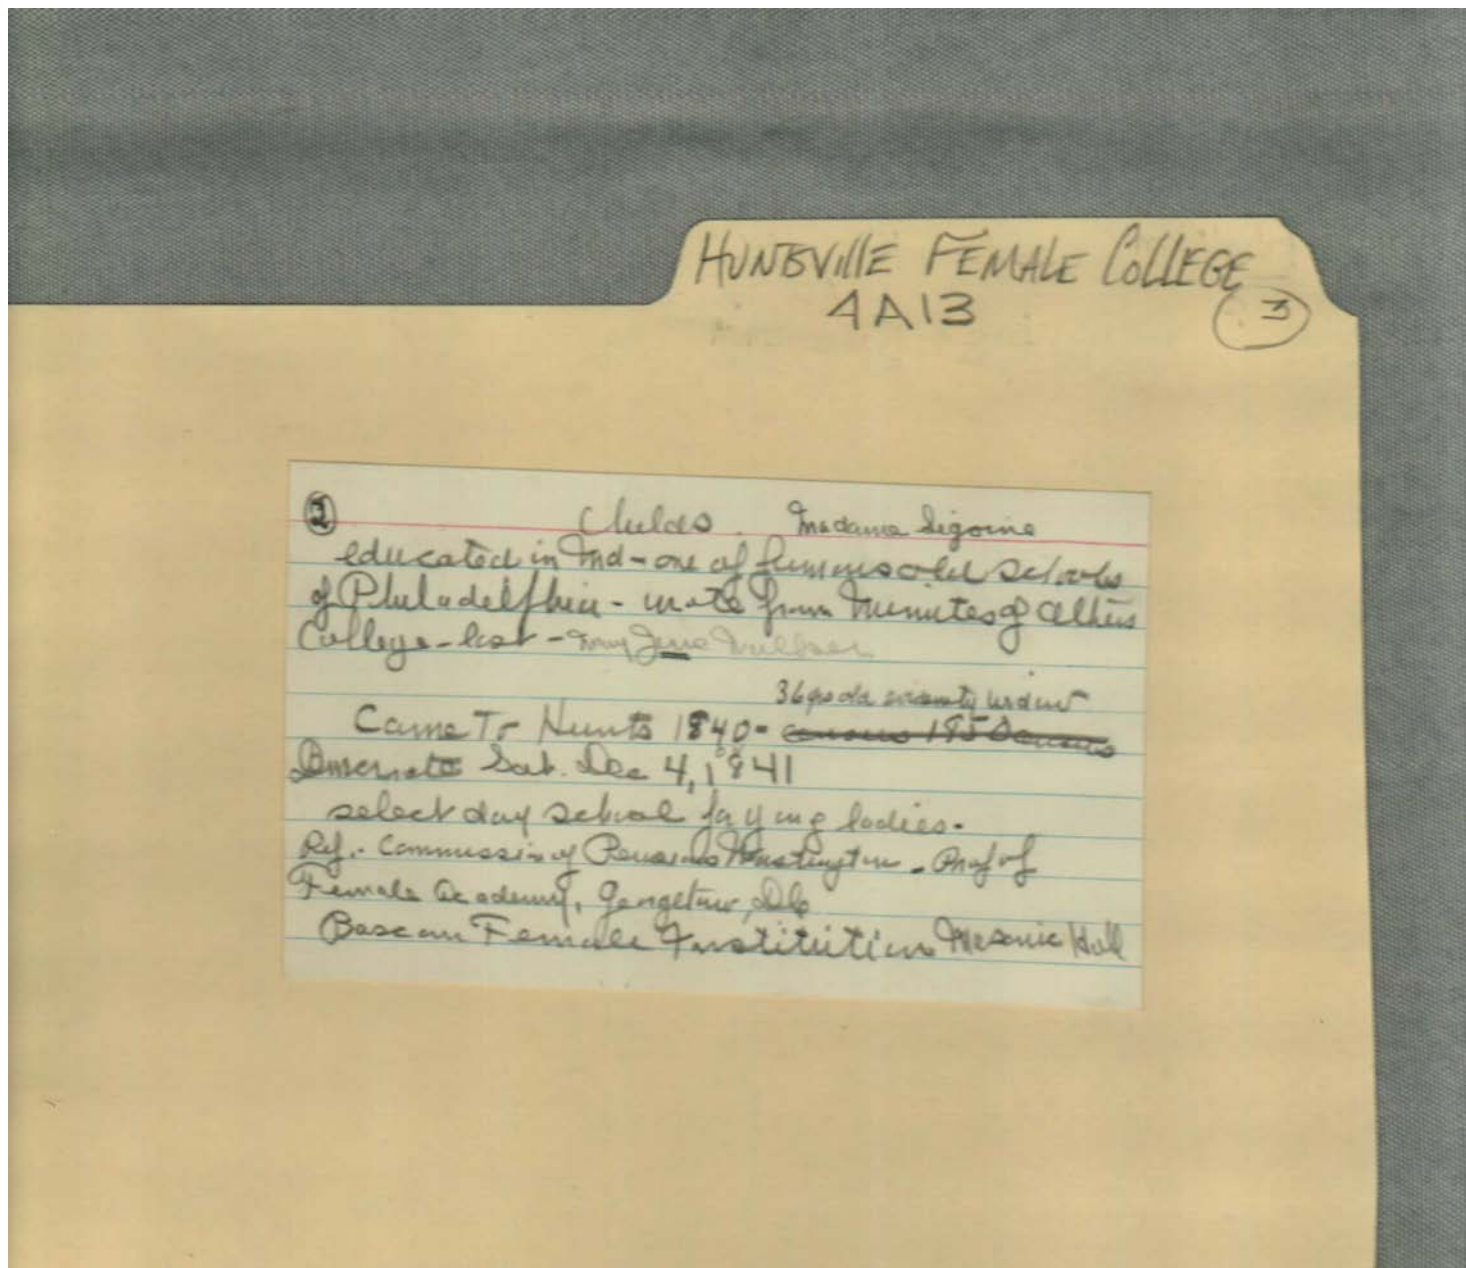 HUNTSVILLE FEMALE COLLEGE
4A13
3
2 Childs. Madame Sigoine
educated in Md - one of famous old schools
of Philadelphia - wrote from minutes of Athens
College - last - Mary Jane
36 yrs old widow
Came To Hunts 1840 - census 1850 census
Democrat Sat. Dec 4, 1841
select day school for yung ladies -
Ref. - Commission of Pensions Washington - Prof of
Female Academy, Georgetow, D.C.
Bascom Female Institution Masonic Hall